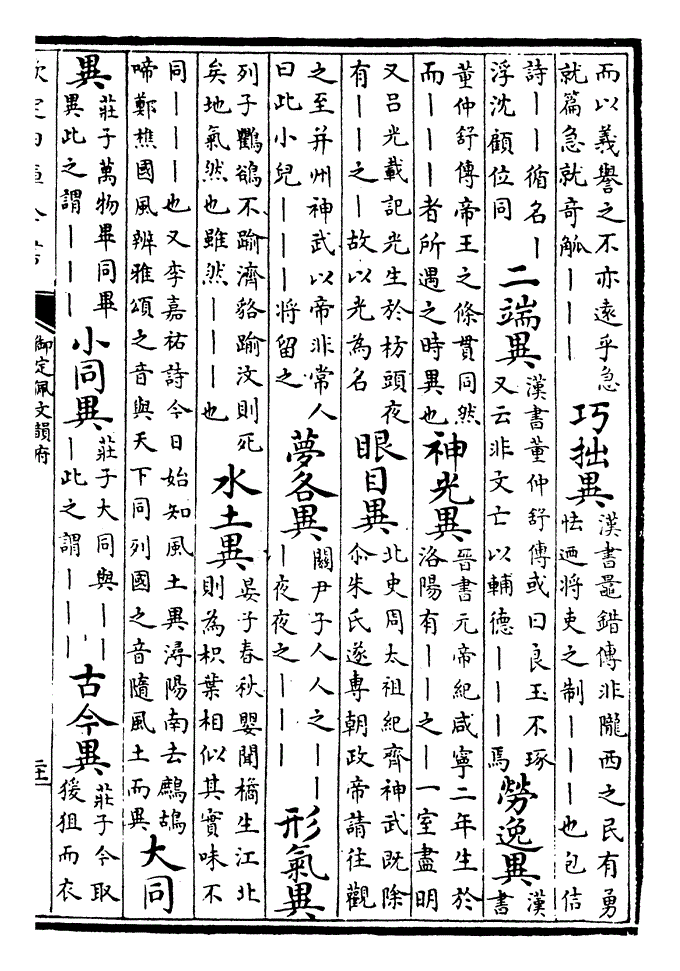 而以義譽之不亦遠乎急
就篇急就奇觚｜｜｜
巧拙異
漢書鼂錯傳非隴西之民有勇
怯迺將吏之制｜｜｜也包佶
詩｜｜循名｜
浮沈顧位同
二端異
漢書董仲舒傳或曰良玉不琢
又云非文亡以輔德｜｜｜焉
勞逸異
漢
書
董仲舒傳帝王之條貫同然
而｜｜｜者所遇之時異也
神光異
晉書元帝紀咸寧二年生於
洛陽有｜｜之｜一室盡明
又呂光載記光生於枋頭夜
有｜｜之｜故以光為名
眼目異
北史周太祖紀齊神武既除
尒朱氏遂專朝政帝請往觀
之至并州神武以帝非常人
曰此小兒｜｜｜將留之
夢各異
關尹子人人之｜｜
｜夜夜之｜｜｜
形氣異
列子鸜鵒不踰濟貉踰汶則死
矣地氣然也雖然｜｜｜也
水土異
晏子春秋嬰聞橘生江北
則為枳葉相似其實味不
同｜｜｜也又李嘉祐詩今日始知風土異潯陽南去鷓鴣
啼鄭樵國風辨雅頌之音與天下同列國之音隨風土而異
大同
異
莊子萬物畢同畢
異此之謂｜｜｜
小同異
莊子大同與｜｜
｜此之謂｜｜｜
古今異
莊子今取
猨狙而衣
御定佩文韻府